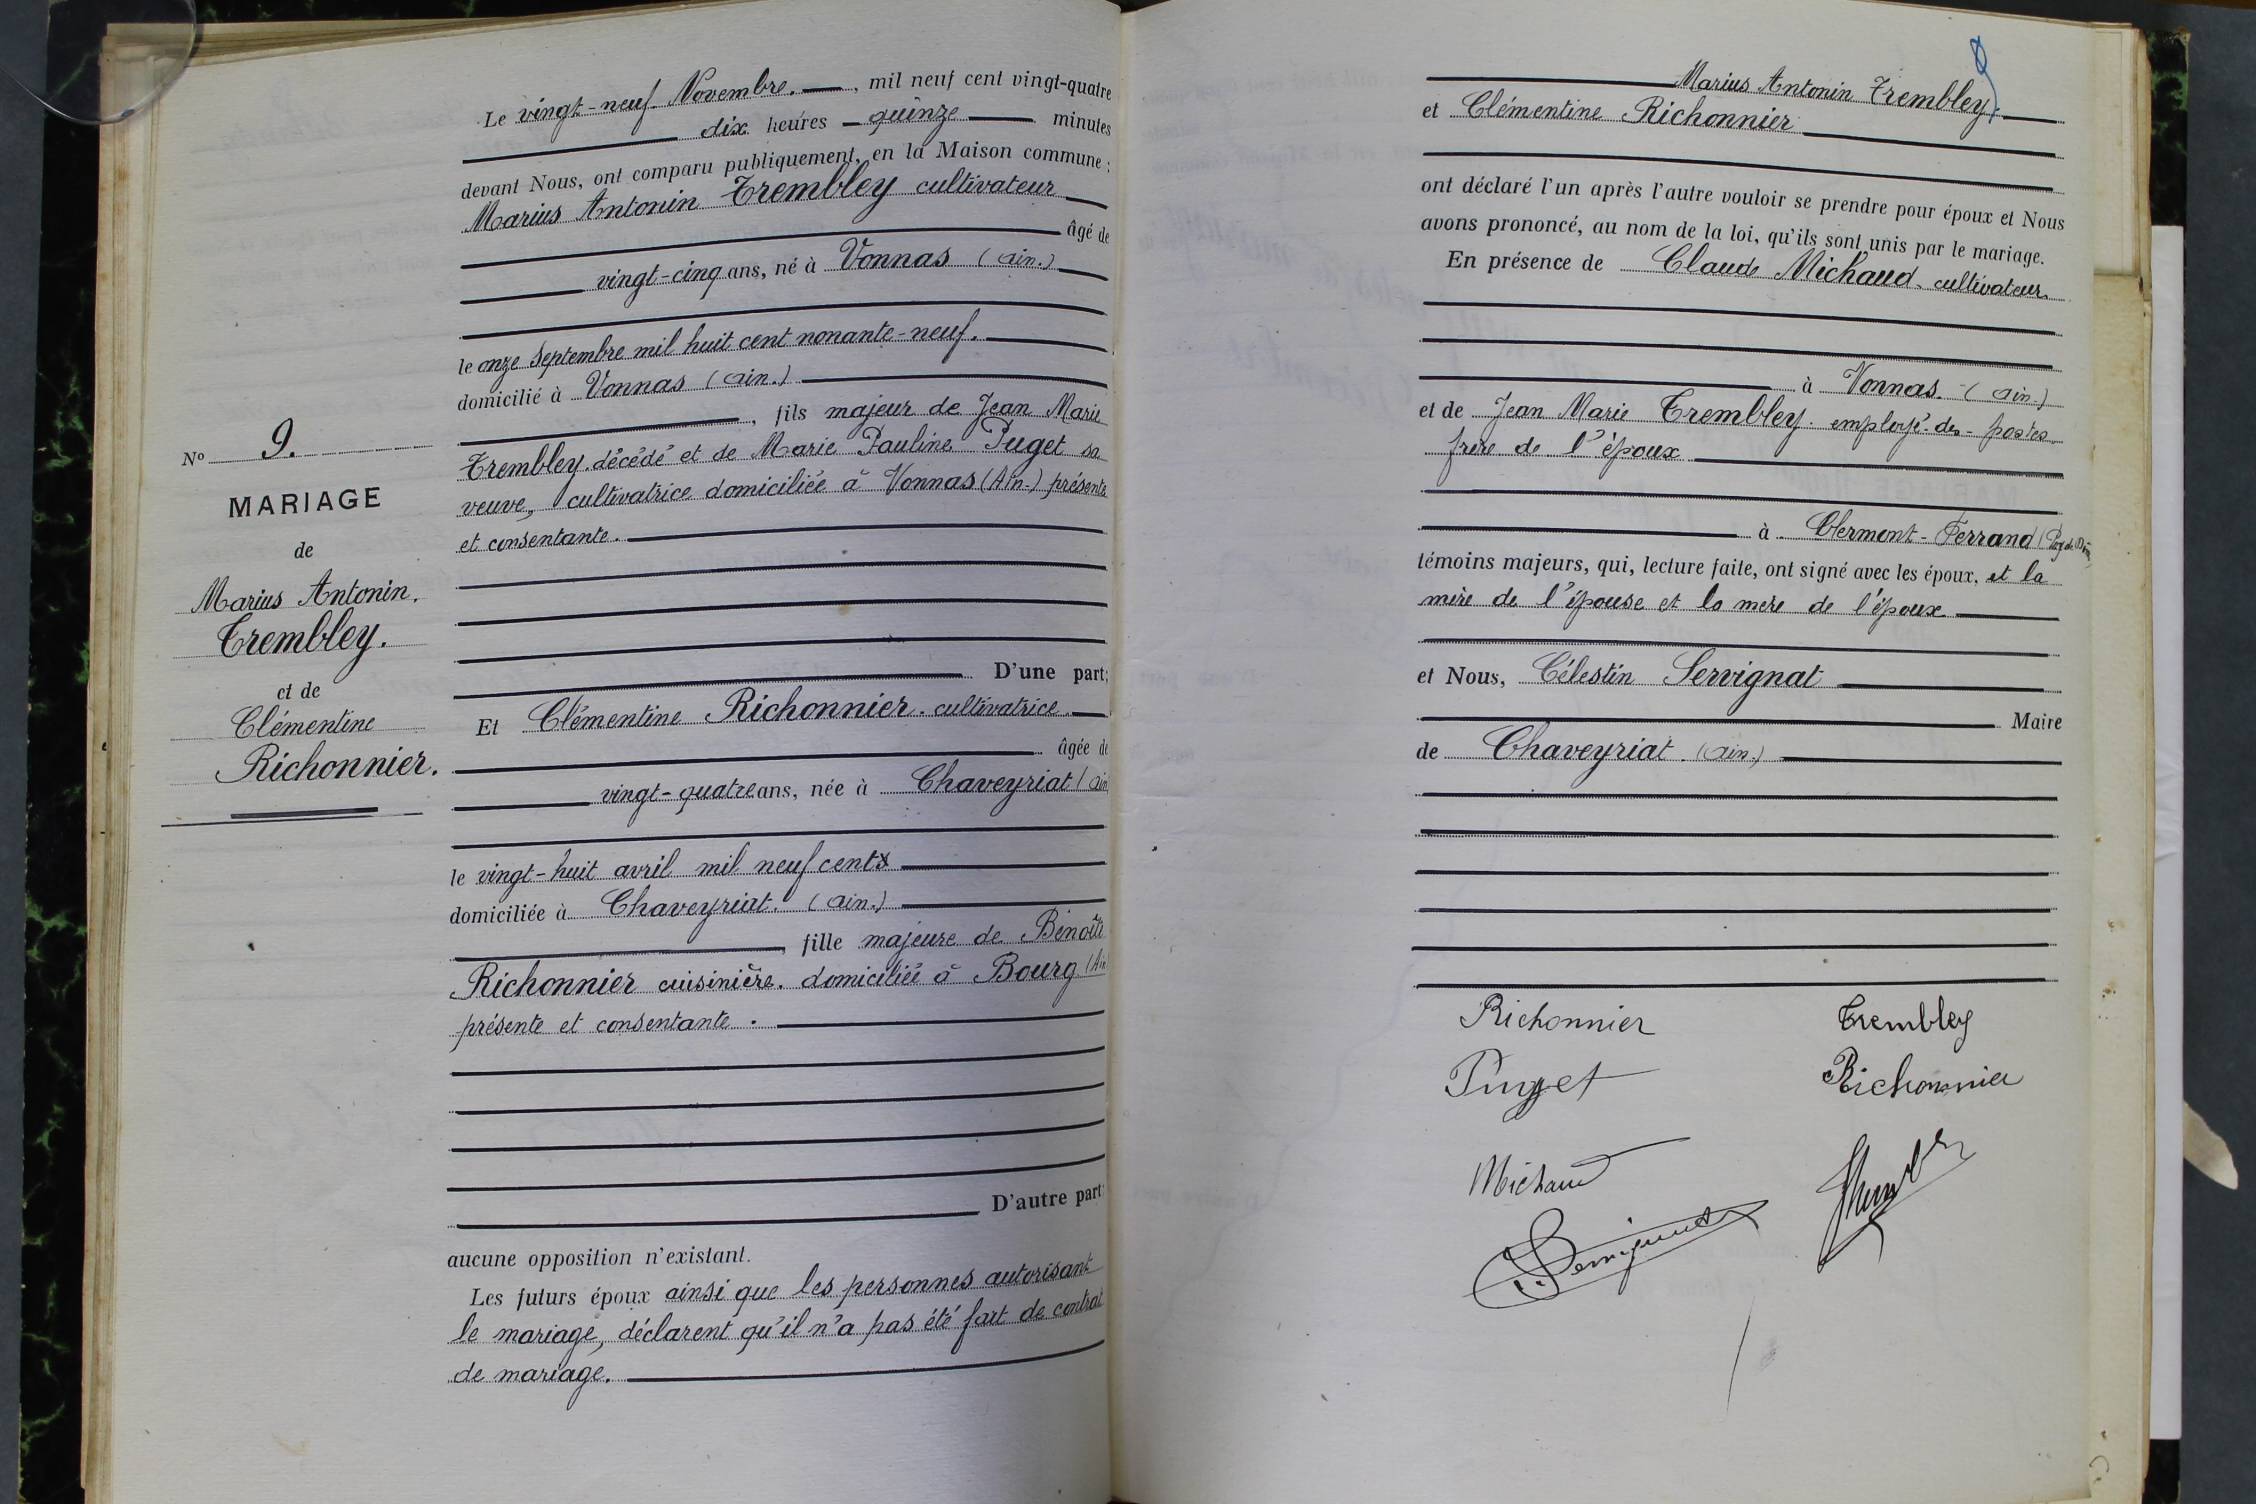 Nº 9.
MARIAGE
de
Marius Antonin.
Trembley.
et de
Clémentine
Richonnier.
Le vingt-neuf Novembre. , mil neuf cent vingt-quatre
dix heures quinze minutes
devant Nous, ont comparu publiquement, en la Maison commune ;
Marius Antonin Trembley cultivateur
âgé de
vingt-cinq ans, né à Vonnas (Ain.)
le onze Septembre mil huit cent nonante-neuf.
domicilié à Vonnas (Ain.)
, fils majeur de Jean Marie
Trembley. décédé et de Marie Pauline Puget sa
veuve, cultivatrice domiciliée à Vonnas (Ain.) présente
et consentante.
D'une part;
Et Clémentine Richonnier. cultivatrice.
âgée de
vingt-quatre ans, née à Chaveyriat (Ain
le vingt-huit avril mil neuf cents
domiciliée à Chaveyriat. (Ain.)
, fille majeure de Benoîte
Richonnier cuisinière. domiciliée à Bourg (Ain
présente et consentante.
D'autre part;
aucune opposition n'existant.
Les futurs époux ainsi que les personnes autorisant
le mariage, déclarent qu'il n'a pas été fait de contrat
de mariage.
Marius Antonin Trembley.
et Clémentine Richonnier
ont déclaré l'un après l'autre vouloir se prendre pour époux et Nous
avons prononcé, au nom de la loi, qu'ils sont unis par le mariage.
En présence de Claude Michaud. cultivateur.
à Vonnas. (Ain.)
et de Jean Marie Trembley. employé des postes
frère de l'époux
à Clermont-Ferrand (Puy de Dôme)
témoins majeurs, qui, lecture faite, ont signé avec les époux, et la
mère de l'épouse et la mère de l'époux
et Nous, Célestin Servignat
Maire
de Chaveyriat. (Ain.)
Richonnier Trembley
Puget Richonnier
Michaud
Servignat